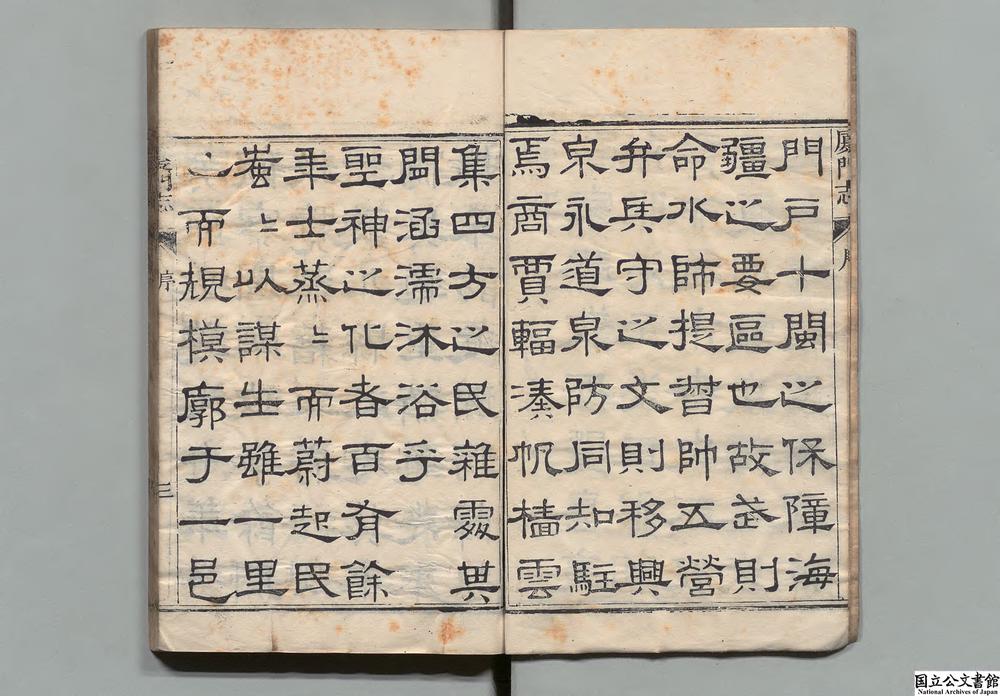 廈門志 序
門戶十閩之保障海
疆之要區也故武則
命水師提督帥五營
弁兵守之文則移興
泉永道泉防同知駐
焉商賈輻湊帆檣雲
集四方之民雜處其
間涵濡沐浴乎
聖神之化者百有餘
年士蒸〻而蔚起民
蚩〻以謀生雖一里
之而規模廓于一邑
廈門志 序 三
国立公文書館
National Archives of Japan